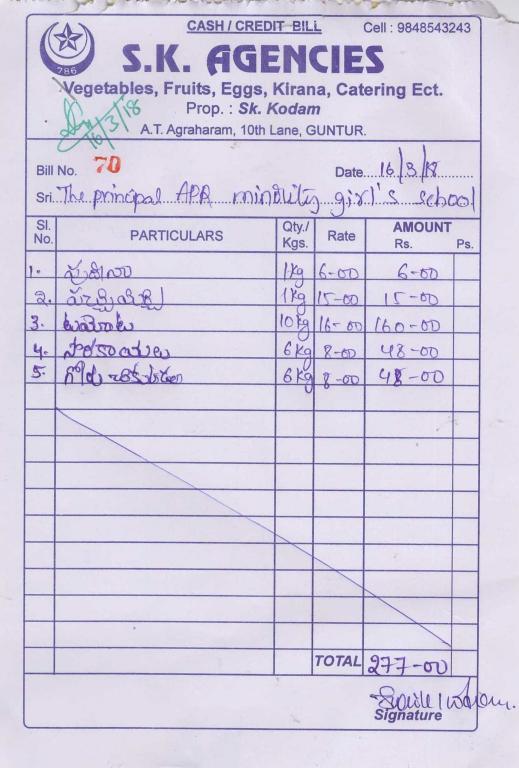 CASH / CREDIT BILL
Cell : 9848543243
786
S.K. AGENCIES
Vegetables, Fruits, Eggs, Kirana, Catering Ect.
Prop. : Sk. Kodam
16/3/18
A.T. Agraharam, 10th Lane, GUNTUR.
Bill No. 70 Date 16/3/18
Sri. The principal APR minority girl's school
Sl. No. PARTICULARS Qty./ Kgs. Rate AMOUNT Rs. Ps.
1. పుదీనా 1kg 6-00 6-00
2. పచ్చిమిర్చి 1kg 15-00 15-00
3. టమోటా 10kg 16-00 160-00
4. సొరకాయలు 6kg 8-00 48-00
5. గోరు చిక్కుడు 6kg 8-00 48-00
TOTAL 277-00
Signature